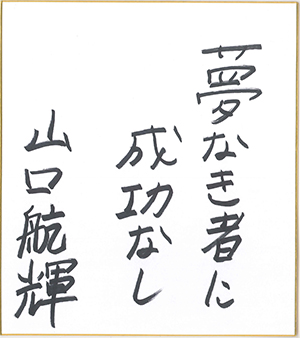 夢なき者に
成功なし
山口航輝